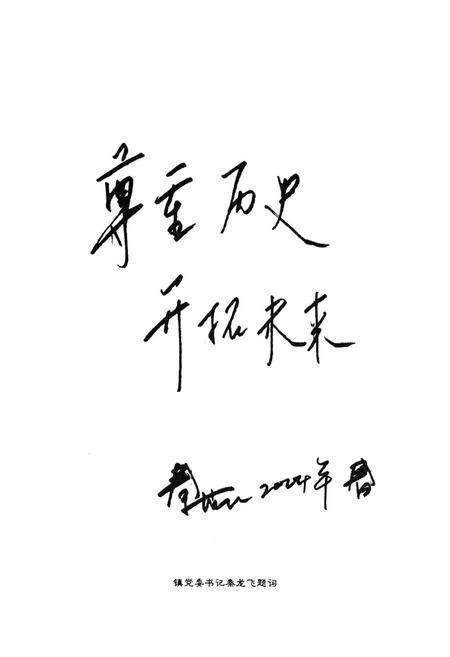 尊重历史
开拓未来
秦龙飞 2024年春
镇党委书记秦龙飞题词